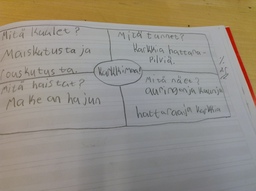 Mitä kuulet?
Maiskutusta ja
rouskutusta.
Mitä haistat?
Makean hajun
Karkkimaa
Mitä tunnet?
Karkkia hattara-
pilviä.
Mitä näet?
auringon ja
hattaroita ja karkkia